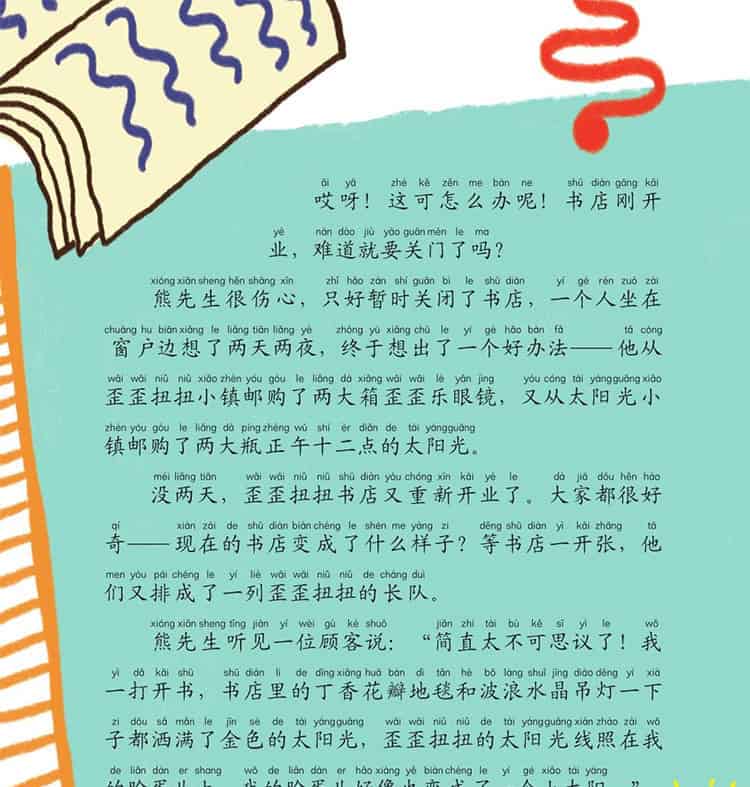 āi yā zhè kě zěn me bàn ne shū diàn gāng kāi
哎呀！这可怎么办呢！书店刚开
yè nán dào jiù yào guān mén le ma
业，难道就要关门了吗？
xióng xiān sheng hěn shāng xīn zhǐ hǎo zàn shí guān bì le shū diàn yí gè rén zuò zài
熊先生很伤心，只好暂时关闭了书店，一个人坐在
chuāng hu biān xiǎng le liǎng tiān liǎng yè zhōng yú xiǎng chū le yí gè hǎo bàn fǎ tā cóng
窗户边想了两天两夜，终于想出了一个好办法——他从
wāi wāi niǔ niǔ xiǎo zhèn yóu gòu le liǎng dà xiāng wāi wāi lè yǎn jìng yòu cóng tài yáng guāng xiǎo
歪歪扭扭小镇邮购了两大箱歪歪乐眼镜，又从太阳光小
zhèn yóu gòu le liǎng dà píng zhèng wǔ shí èr diǎn de tài yáng guāng
镇邮购了两大瓶正午十二点的太阳光。
méi liǎng tiān wāi wāi niǔ niǔ shū diàn yòu chóng xīn kāi yè le dà jiā dōu hěn hào
没两天，歪歪扭扭书店又重新开业了。大家都很好
qí xiàn zài de shū diàn biàn chéng le shén me yàng zi děng shū diàn yì kāi zhāng tā
奇——现在的书店变成了什么样子？等书店一开张，他
men yòu pái chéng le yí liè wāi wāi niǔ niǔ de cháng duì
们又排成了一列歪歪扭扭的长队。
xióng xiān sheng tīng jiàn yí wèi gù kè shuō jiǎn zhí tài bù kě sī yì le wǒ
熊先生听见一位顾客说：“简直太不可思议了！我
yì dǎ kāi shū shū diàn li de dīng xiāng huā bàn dì tǎn hé bō làng shuǐ jīng diào dēng yí xià
一打开书，书店里的丁香花瓣地毯和波浪水晶吊灯一下
zi dōu sǎ mǎn le jīn sè de tài yáng guāng wāi wāi niǔ niǔ de tài yáng guāng xiàn zhào zài wǒ
子都洒满了金色的太阳光，歪歪扭扭的太阳光线照在我
de liǎn dàn er shang wǒ de liǎn dàn er hǎo xiàng yě biàn chéng le yí gè xiǎo tài yáng
的脸蛋儿上，我的脸蛋儿好像也变成了一个小太阳。”